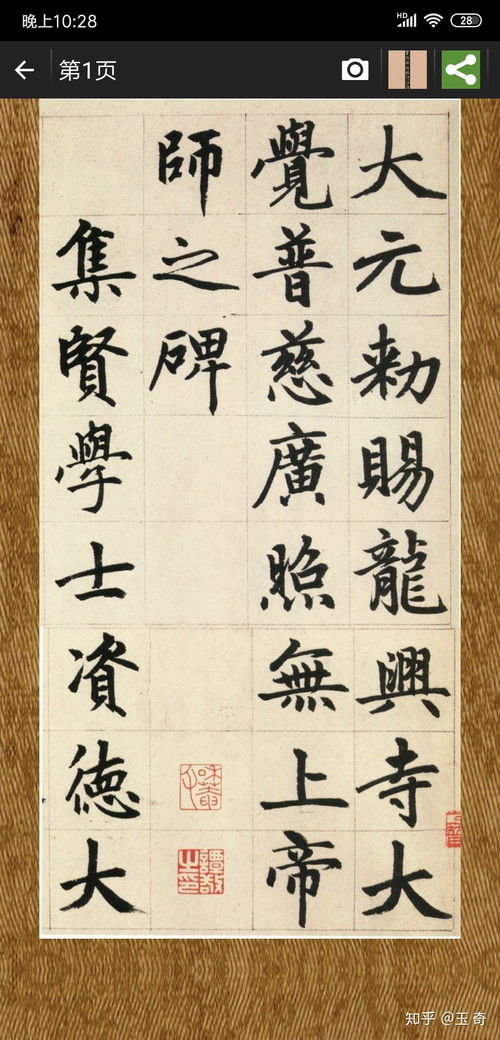 晚上10:28
HD
28
第1页
大元勅賜龍興寺大
覺普慈廣照無上帝
師之碑
集賢學士資德大
譚敬
之印
知乎 @玉奇